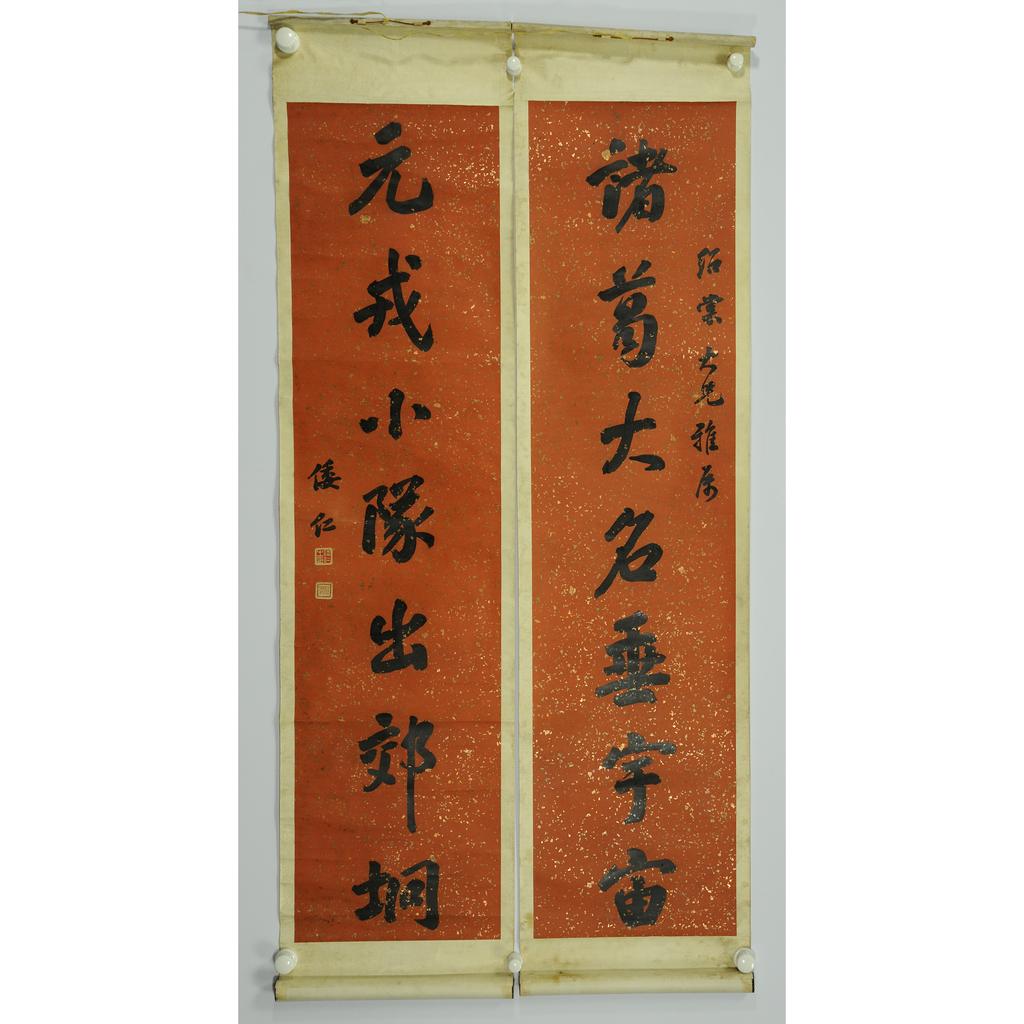 紹棠大兄雅屬
諸葛大名垂宇宙
元戎小隊出郊坰
倭仁